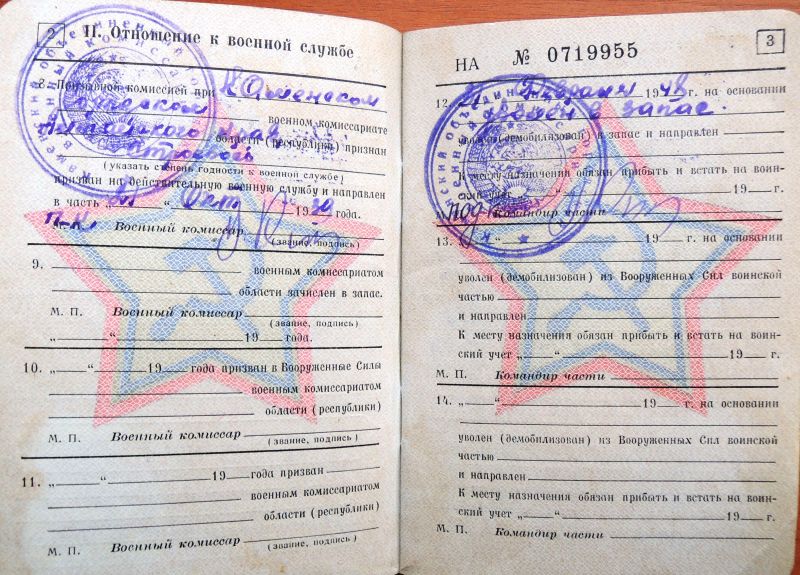 2
II. Отношение к военной службе
8. Призывной комиссией при Каменском
военном комиссариате
Алтайского края
области (республики) признан
строевой
(указать степень годности к военной службе)
призван на действительную военную службу и направлен
в часть „ “ 19 30 года.
Военный комиссар
(звание, подпись)
9.
военным комиссариатом
области зачислен в запас.
М. П. Военный комиссар
(звание, подпись)
„ “ 19 года.
10. „ “ 19 года призван в Вооруженные Силы
военным комиссариатом
области (республики)
М. П. Военный комиссар
(звание, подпись)
11. „ “ 19 года призван
военным комиссариатом
области (республики)
М. П. Военный комиссар
(звание, подпись)
3
НА № 0719955
12. 19 48 г. на основании
в запас.
уволен (демобилизован) в запас и направлен
К месту назначения обязан прибыть и встать на воин-
ский учет 19 г.
М. П. Командир части
13. „ “ 19 г. на основании
уволен (демобилизован) из Вооруженных Сил воинской
частью
и направлен
К месту назначения обязан прибыть и встать на воин-
ский учет „ “ 19 г.
М. П. Командир части
14. „ “ 19 г. на основании
уволен (демобилизован) из Вооруженных Сил воинской
частью
и направлен
К месту назначения обязан прибыть и встать на воин-
ский учет „ “ 19 г.
М. П. Командир части